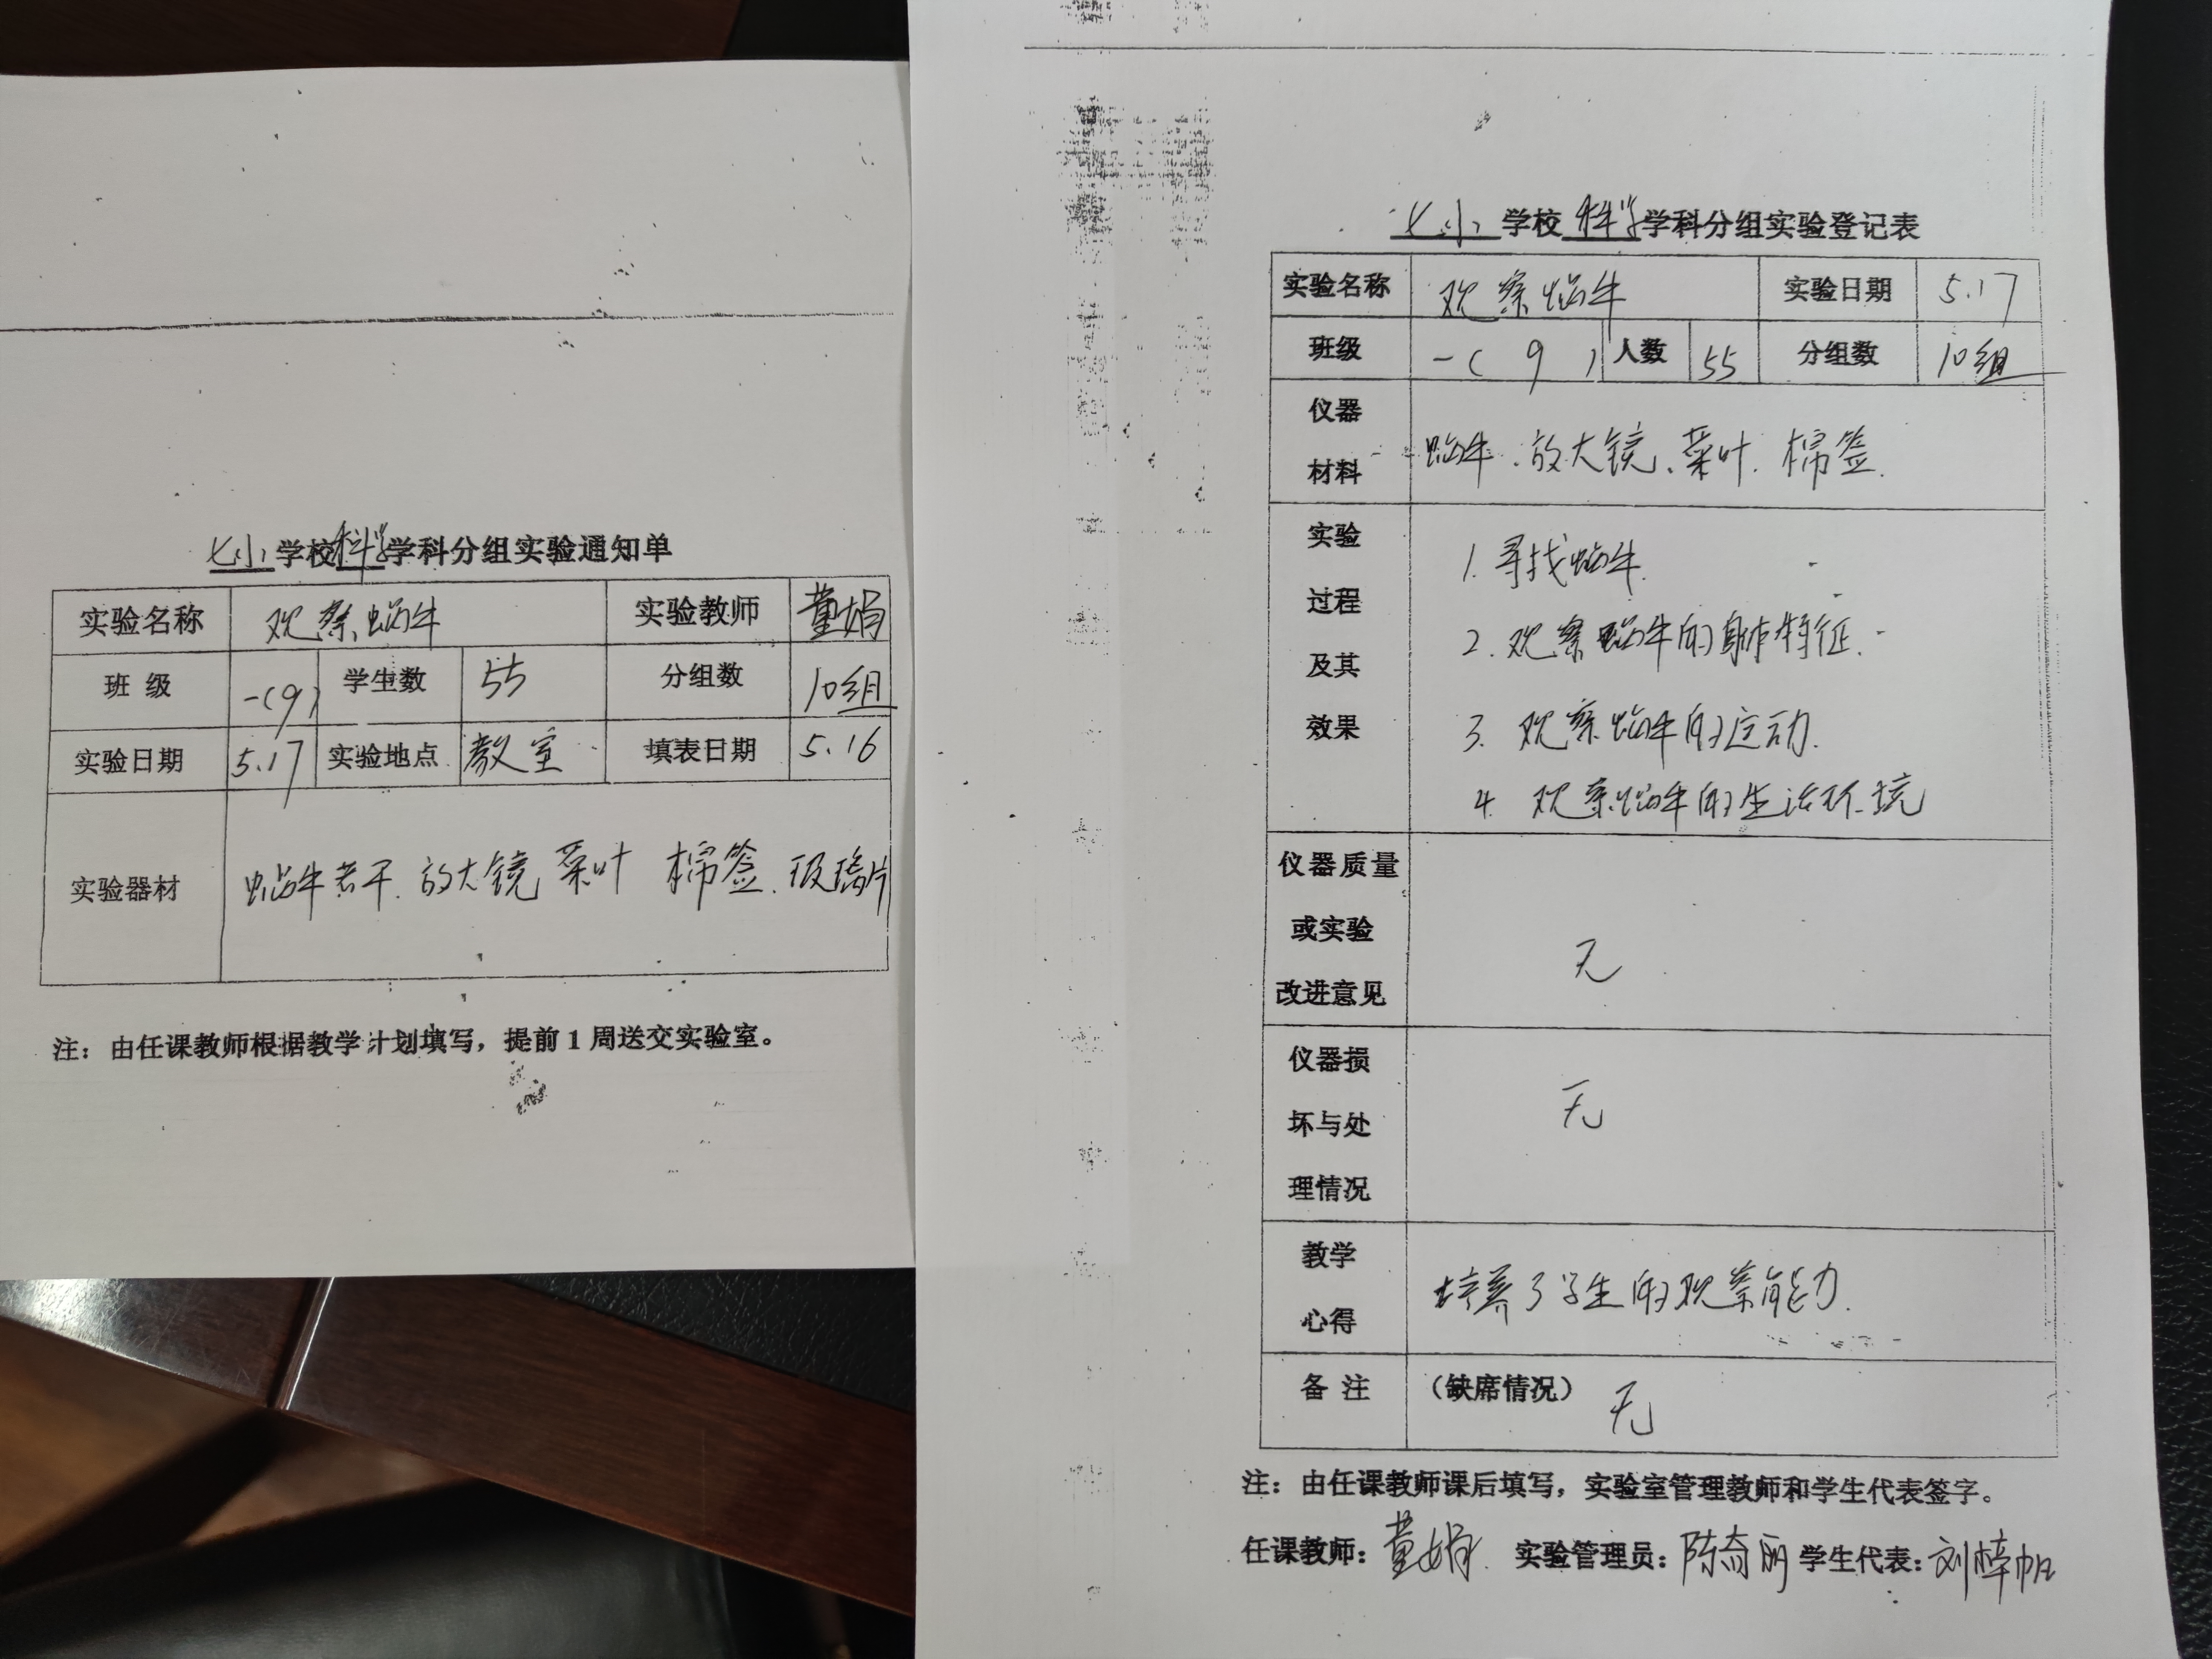 七小 学校 科学 学科分组实验通知单
实验名称 观察蜗牛 实验教师 董娟
班 级 一(9) 学生数 55 分组数 10组
实验日期 5.17 实验地点 教室 填表日期 5.16
实验器材 蜗牛若干.放大镜 菜叶 棉签.玻璃片
注：由任课教师根据教学计划填写，提前1周送交实验室。
七小 学校 科学 学科分组实验登记表
实验名称 观察蜗牛 实验日期 5.17
班级 一( 9 ) 人数 55 分组数 10组
仪器
材料
蜗牛、放大镜、菜叶. 棉签.
实验
过程
及其
效果
1. 寻找蜗牛.
2. 观察蜗牛的身体特征.
3. 观察蜗牛的运动.
4. 观察蜗牛的生活环境
仪器质量
或实验
改进意见
无
仪器损
坏与处
理情况
无
教学
心得
培养了学生的观察能力.
备 注 （缺席情况） 无
注：由任课教师课后填写，实验室管理教师和学生代表签字。
任课教师：董娟. 实验管理员：陈奇丽 学生代表：刘梓帆